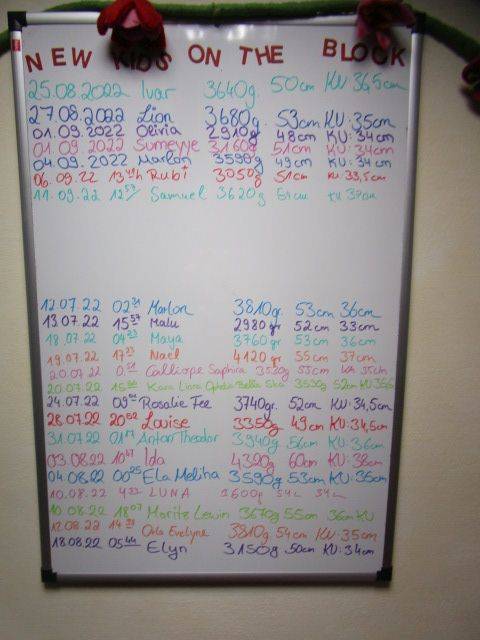 NEW KIDS ON THE BLOCK
25.08.2022 Ivar 3640g. 50cm KU 36,5cm
27.08.2022 Lion 3680g. 53cm KU: 35cm
01.09.2022 Olivia 2910g 48cm KU: 34cm
01.09.2022 Sumeyye 3160g 51cm KU: 34cm
04.09.2022 Marlon 3590g 49cm KU: 34cm
06.09.22 Rubi 3050g 51cm KU: 33,5cm
11.09.22 Samuel 3620g 54cm KU 37cm
12.07.22 02 31 Marlon 3810gr. 53cm 36cm
13.07.22 15 57 Malu 2980gr 52cm 33cm
18.07.22 04 23 Maya 3760gr 53cm 36cm
19.07.22 17 23 Nael 4120gr 55cm 37cm
20.07.22 Calliope Saphira 3520g 55cm KU 35cm
20.07.22 Kara Liara Ophelia Bella Ska 3530g 52cm
24.07.22 Rosalie Fee 3740gr. 52cm KU: 34,5cm
28.07.22 20 52 Louise 3350g 49cm KU: 34,5cm
31.07.22 Anton Theodor 3940g 56cm KU: 36cm
03.08.22 10 47 Ida 4320g 60cm KU: 38cm
04.08.22 00 25 Ela Melina 3590g 53cm KU: 35cm
10.08.22 LUNA 54c 34c
10.08.22 18 07 Moritz Lewin 3670g 55cm 36cm KU
12.08.22 Evelyne 3810g 54cm KU: 35cm
18.08.22 05 44 Elyn 3150g 50cm KU: 34cm